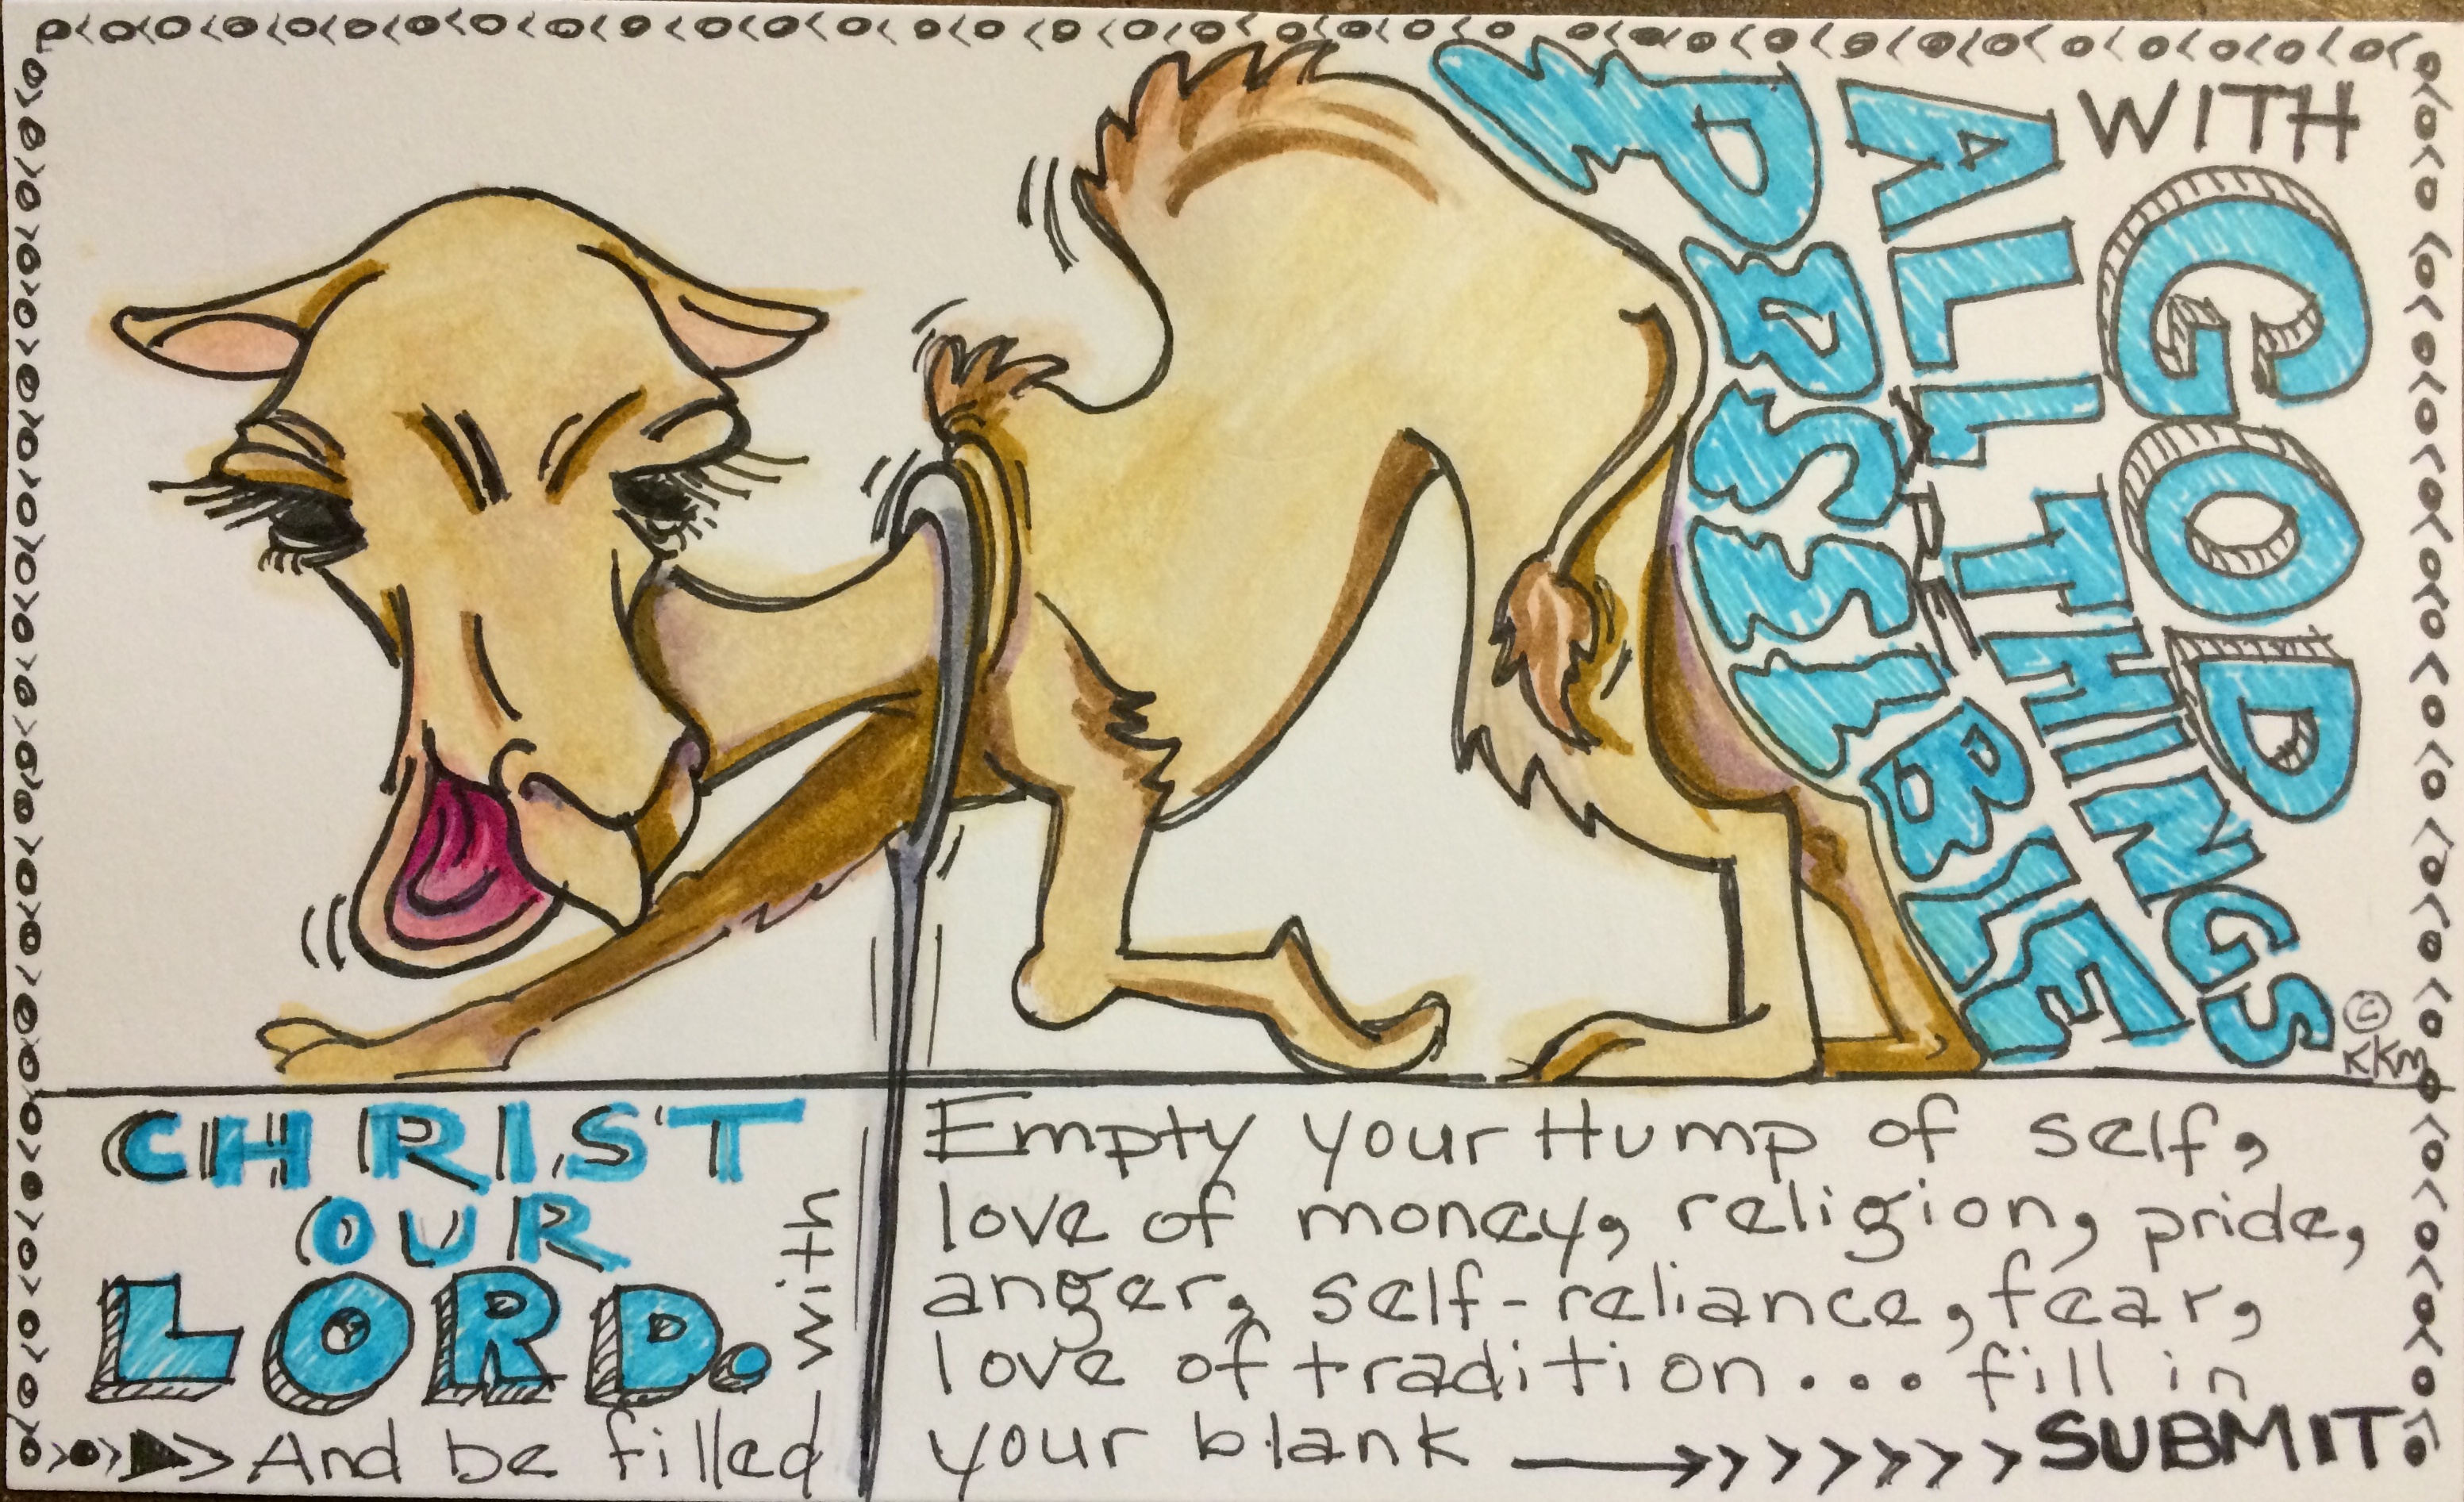 WITH
GOD
ALL THINGS
POSSIBLE
© KKM
Empty your Hump of self,
love of money, religion, pride,
anger, self-reliance, fear,
love of tradition... fill in
your blank
SUBMIT
And be filled
with
CHRIST
OUR
LORD.